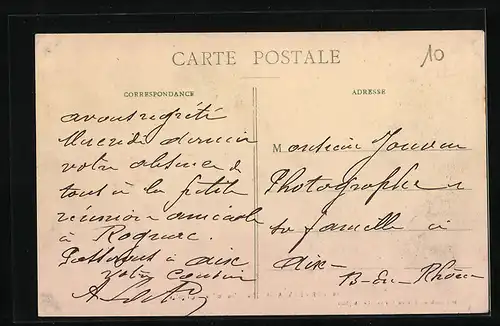 CARTE POSTALE
10
CORRESPONDANCE
avons regretté
Mercredi dernier
votre absence de
tout à la petite
réunion amicale
à Rognac.
à aix
votre cousin
ADRESSE
Monsieur Jouven
Photographe
sa famille à
aix-
B-du-Rhône